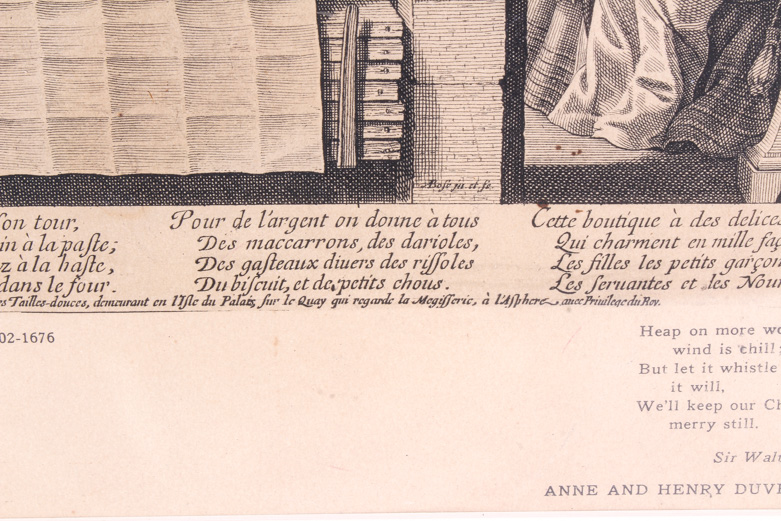 Bosse in. et fe.
son tour,
in à la paste;
z à la haste,
dans le four.
Pour de l'argent on donne à tous
Des maccarrons, des darioles,
Des gasteaux diuers des rissoles
Du biscuit, et de petits chous.
Cette boutique à des delices
Qui charment en mille faç
Les filles les petits garçon
Les seruantes et les Nour
es Tailles-douces, demeurant en l'Isle du Palais, sur le Quay qui regarde la Megisserie, à l'Asphere auec Priuilege du Roy.
02-1676
Heap on more wo
wind is chill;
But let it whistle
it will,
We'll keep our Ch
merry still.
Sir Walt
ANNE AND HENRY DUVE